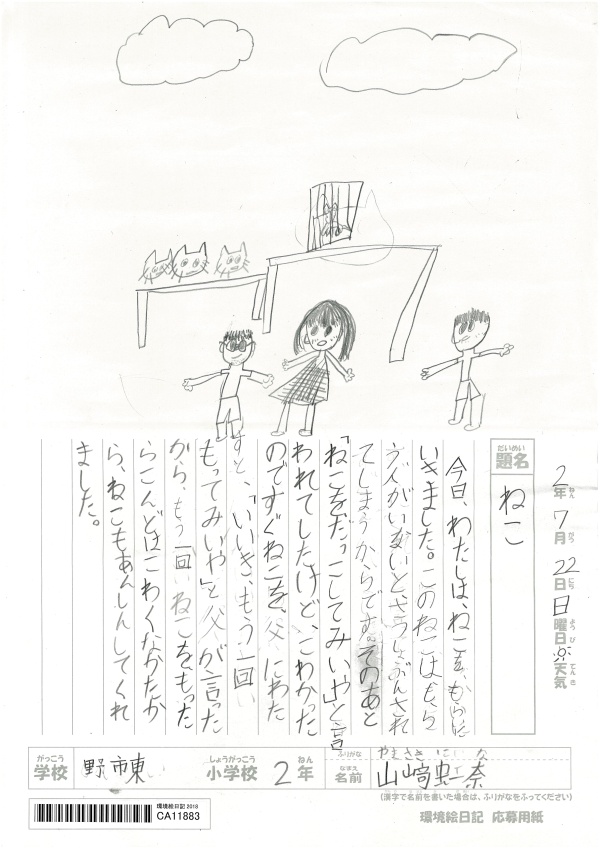 2年7月22日日曜日天気
ねんがつにちようびてんき
だいめい
題名
ねこ
今日、わたしは、ねこを、もらいに
いきました。このねこはもらう
人がいないとさつしょぶんされ
てしまうからです。そのあと
「ねこをだっこしてみいや」と言
われてしたけど、こわかった
のですぐねこを、父にわた
すと、「いいき、もう一回
もってみいや」と父が言った
から、もう一回ねこをもった
らこんどはこわくなかたか
ら、ねこもあんしんしてくれ
ました。
がっこう しょうがっこう ねん ふりがな やまさき にいな
学校 野市東 小学校 2年 なまえ 名前 山﨑虹奈
(漢字で名前を書いた場合は、ふりがなをふってください)
環境絵日記 2018
CA11883
環境絵日記 応募用紙